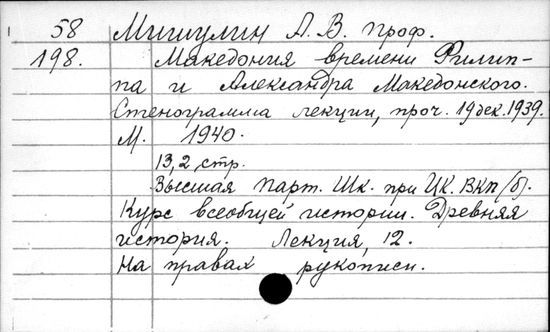 58 Мишулин А. В. проф.
198. Македония времени Филип-
па и Александра Македонского.
Стенограмма лекции, проч. 19 дек. 1939.
М. 1940.
13,2 стр.
Высшая Парт. Шк. при ЦК. ВКП/б).
Курс всеобщей истории. Древняя
история. Лекция, 12.
На правах рукописи.